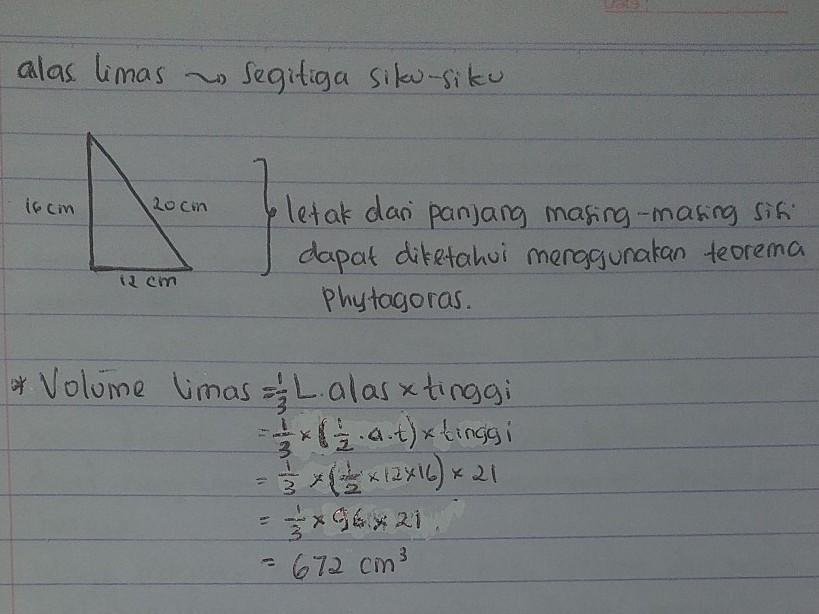 alas limas ~> segitiga siku-siku
16 cm
20 cm
12 cm
} letak dari panjang masing-masing sisi
dapat diketahui menggunakan teorema
phytagoras.
* Volume limas = 1/3 L. alas × tinggi
= 1/3 × (1/2 . a . t) × tinggi
= 1/3 × (1/2 × 12 × 16) × 21
= 1/3 × 96 × 21
= 672 cm³